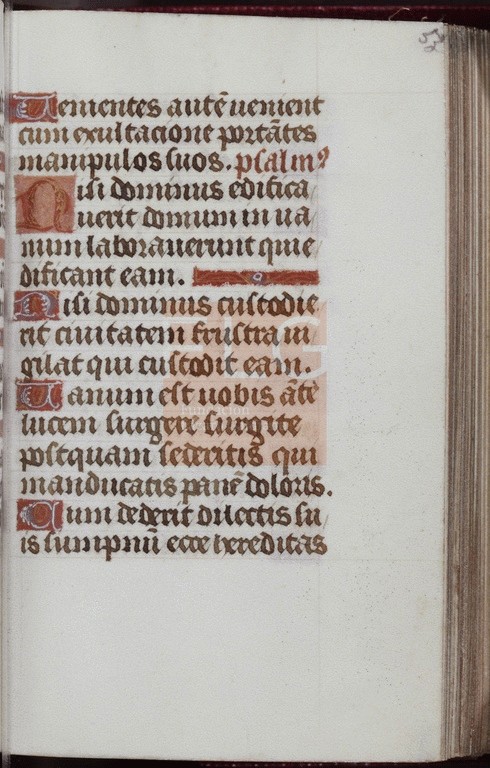 52
Uenientes autē uenient
cum exultacione portātes
manipulos suos. psalmꝰ
Nisi dominus edifica
uerit domum in ua
num laborauerunt qui e
dificant eam.
Nisi dominus custodie
rit ciuitatem frustra ui
gilat qui custodit eam.
Uanum est uobis āte
lucem surgere surgite
postquam sederitis qui
manducatis panē doloris.
Cum dederit dilectis su
is sumpnū ecce hereditas